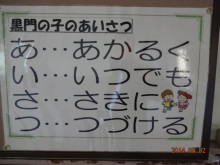 黒門の子のあいさつ
あ…あかるく
い…いつでも
さ…さきに
つ…つづける